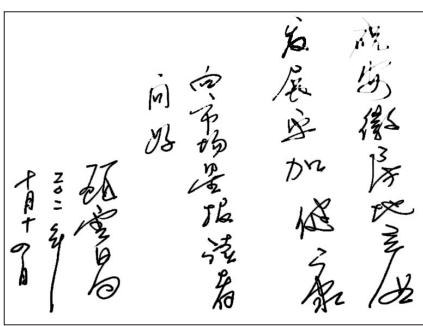 祝安徽房地产业
发展更加健康
向市场星报读者
问好
顾雲昌
二〇一一年
十月十四日